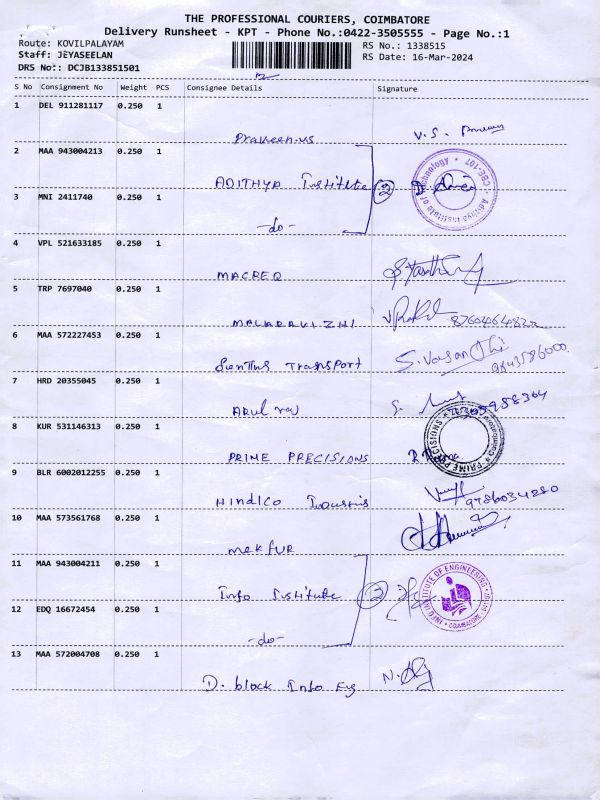 THE PROFESSIONAL COURIERS, COIMBATORE
Delivery Runsheet - KPT - Phone No.:0422-3505555 - Page No.:1
Route: KOVILPALAYAM RS No.: 1338515
Staff: JEYASEELAN RS Date: 16-Mar-2024
DRS No:: DCJB133851501
S No Consignment No Weight PCS Consignee Details Signature
1 DEL 911281117 0.250 1
Praveen.vs V.S.
2 MAA 943004213 0.250 1
ADITHYA Institute 2
3 MNI 2411740 0.250 1
-do-
Aditya Institute of Technology * CBE-107 *
4 VPL 521633185 0.250 1
MACREQ
5 TRP 7697040 0.250 1
MALARAVIZHI
6 MAA 572227453 0.250 1
Transport S.
7 HRD 20355045 0.250 1
Arul raj S.
8 KUR 531146313 0.250 1
PRIME PRECISIONS
PRIME PRECISIONS
9 BLR 6002012255 0.250 1
Hindico 9786034280
10 MAA 573561768 0.250 1
mekfur
11 MAA 943004211 0.250 1
Info Institute 2
INFO INSTITUTE OF ENGINEERING
COIMBATORE
12 EDQ 16672454 0.250 1
-do-
13 MAA 572004708 0.250 1
D. block Info N.